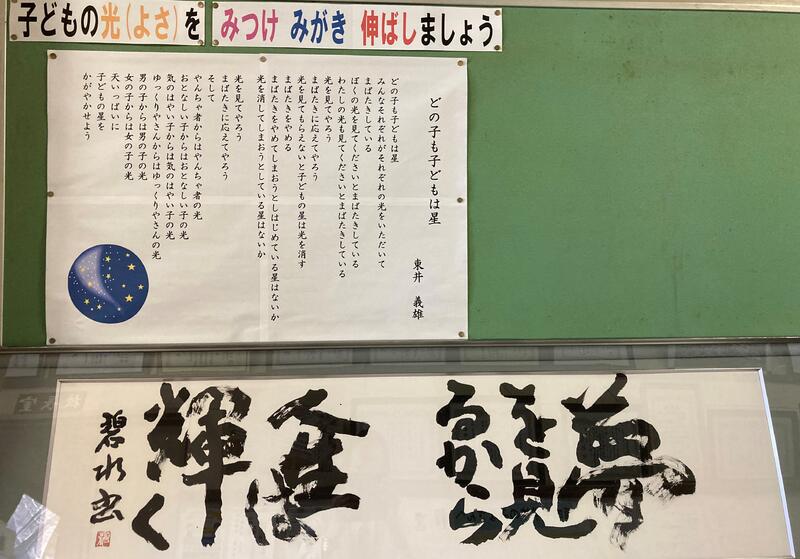 子どもの光(よさ)を みつけ みがき 伸ばしましょう
どの子も子どもは星
東井 義雄
どの子も子どもは星
みんなそれぞれがそれぞれの光をいただいて
まばたきしている
ぼくの光を見てくださいとまばたきしている
わたしの光も見てくださいとまばたきしている
光を見てやろう
まばたきに応えてやろう
光を見てもらえないと子どもの星は光を消す
まばたきをやめる
まばたきをやめてしまおうとしはじめている星はないか
光を消してしまおうとしている星はないか
光を見てやろう
まばたきに応えてやろう
そして
やんちゃ者からはやんちゃ者の光
おとなしい子からはおとなしい子の光
気のはやい子からは気のはやい子の光
ゆっくりやさんからはゆっくりやさんの光
男の子からは男の子の光
女の子からは女の子の光
天いっぱいに
子どもの星を
かがやかせよう
夢
を見
るから
人生は
輝く
碧水書